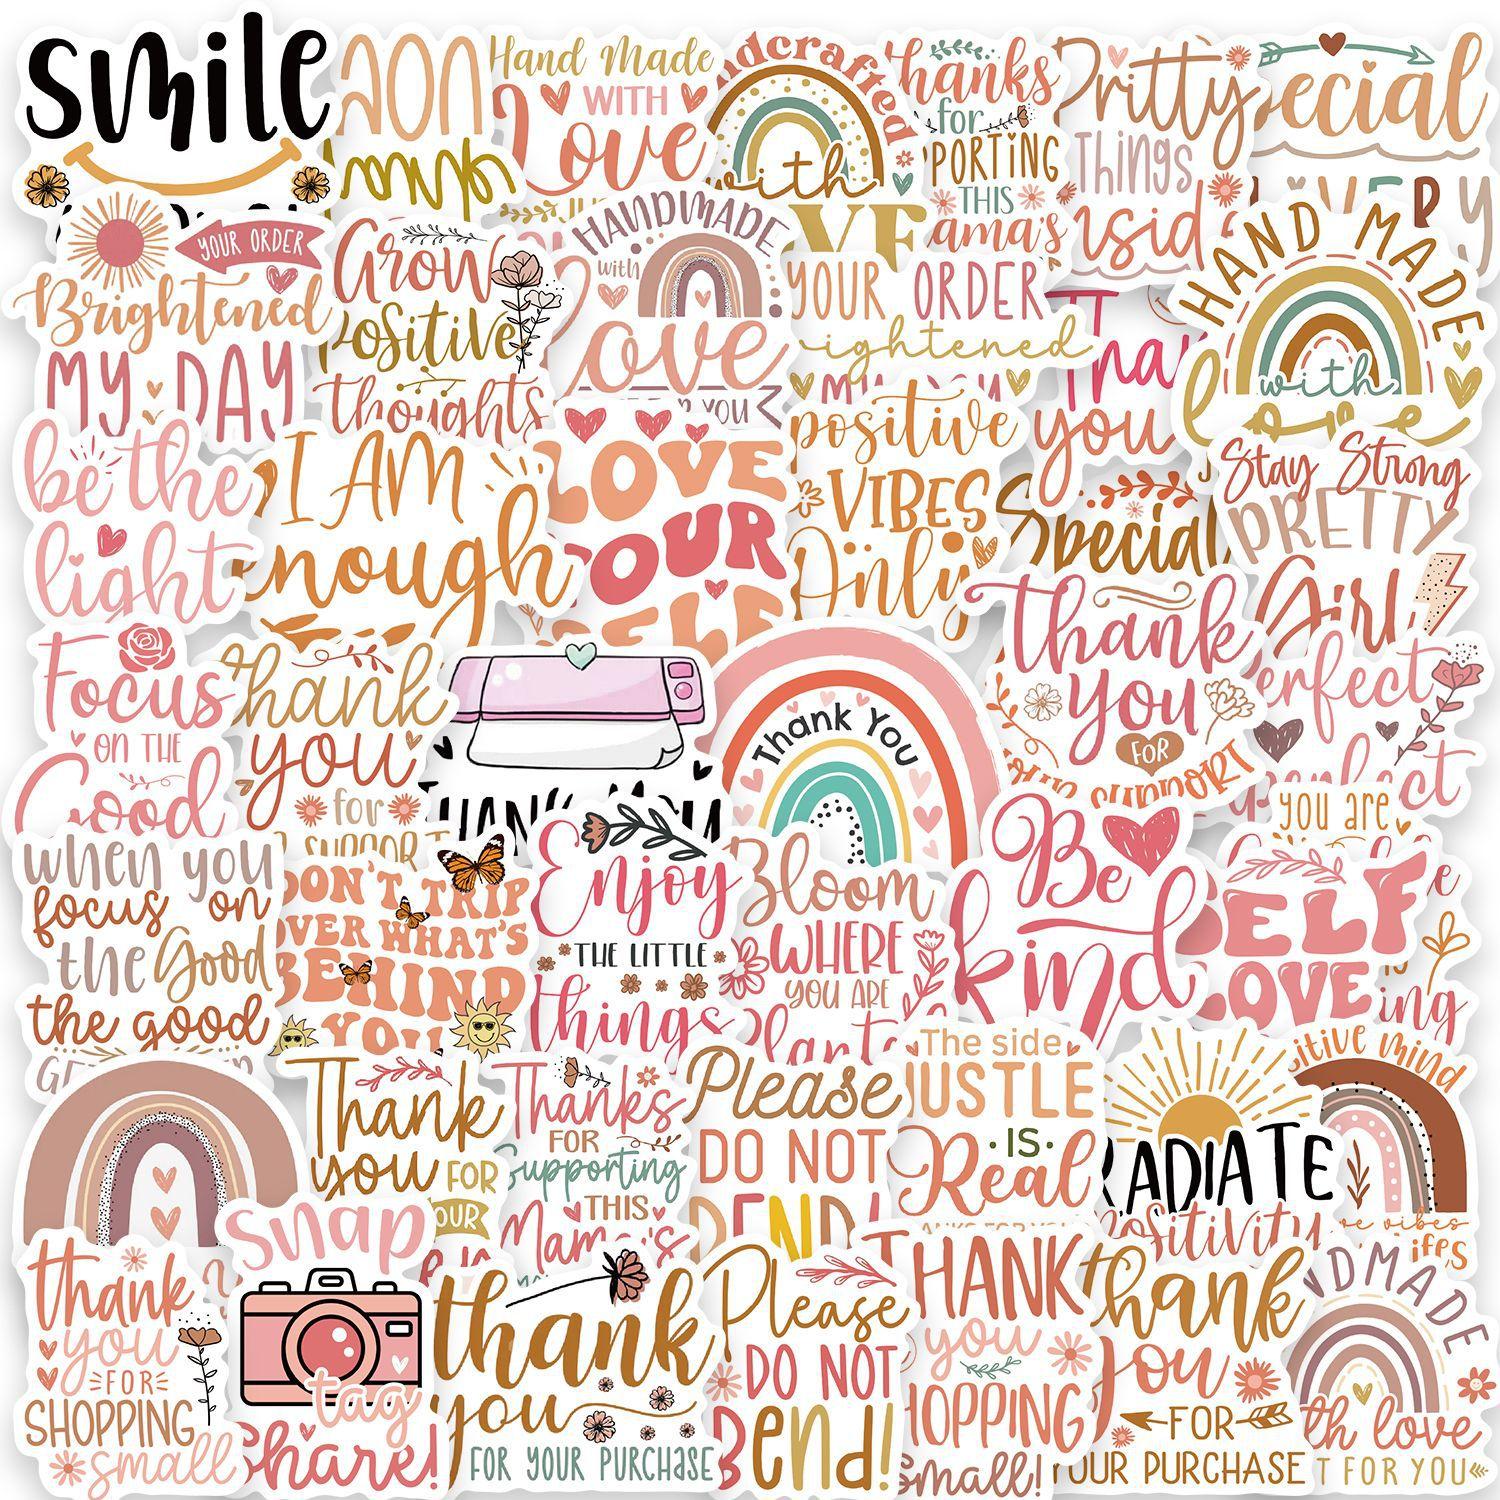 smile
Hand Made
WITH
Love
with
thanks
for
THIS
Pritty
Things
YOUR ORDER
Brightened
MY DAY
Grow
Positive
thoughts
HANDMADE
with
Love
YOUR ORDER
you
HAND MADE
with
love
be the
light
I AM
enough
LOVE
YOUR
SELF
positive
VIBES
Only
Special
Stay Strong
PRETTY
Girl
Focus
ON THE
Good
thank
you
for
THANK YOU
Thank You
thank
you
FOR
YOUR SUPPORT
perfect
you are
when you
focus on
the Good
the good
DON'T TRIP
OVER WHAT'S
BEHIND
YOU
Enjoy
THE LITTLE
things
Bloom
WHERE
YOU ARE
Be
kind
SELF
LOVE
Thank
you FOR
YOUR
Thanks
FOR
Supporting
THIS
Mama's
Please
DO NOT
BEND!
The side
HUSTLE
IS
Real
RADIATE
Positivity
thank
you
FOR
SHOPPING
small
snap
tag
share!
thank
you
FOR YOUR PURCHASE
Please
DO NOT
Bend!
THANK
you
SHOPPING
small!
thank
you
FOR
YOUR PURCHASE
HANDMADE
with love
FOR YOU